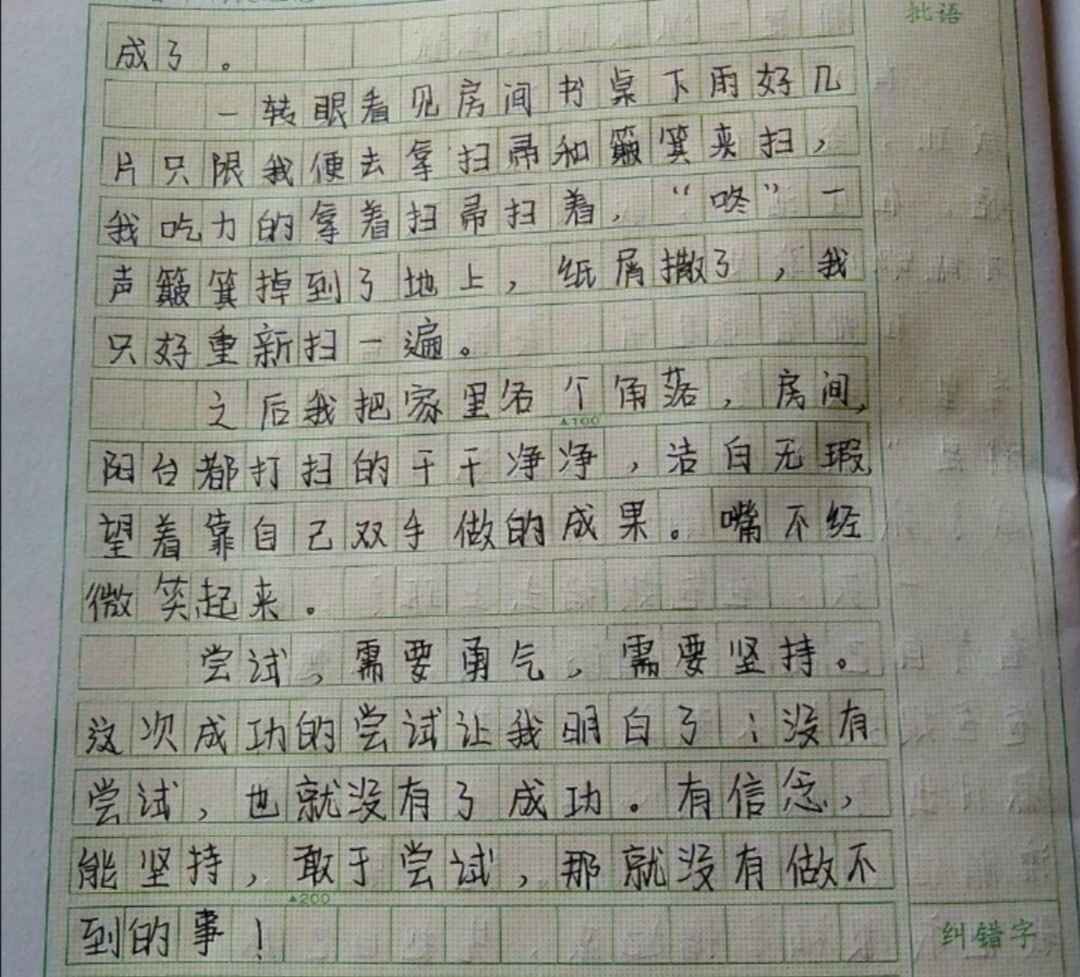 批语
成了。
一转眼看见房间书桌下雨好几
片只限我便去拿扫帚和簸箕来扫，
我吃力的拿着扫帚扫着，“咚”一
声簸箕掉到了地上，纸屑撒了，我
只好重新扫一遍。
之后我把家里各个角落，房间，
▲100
阳台都打扫的干干净净，洁白无瑕
望着靠自己双手做的成果。嘴不经
微笑起来。
尝试，需要勇气，需要坚持。
这次成功的尝试让我明白了：没有
尝试，也就没有了成功。有信念，
能坚持，敢于尝试，那就没有做不
▲200
到的事！
纠错字